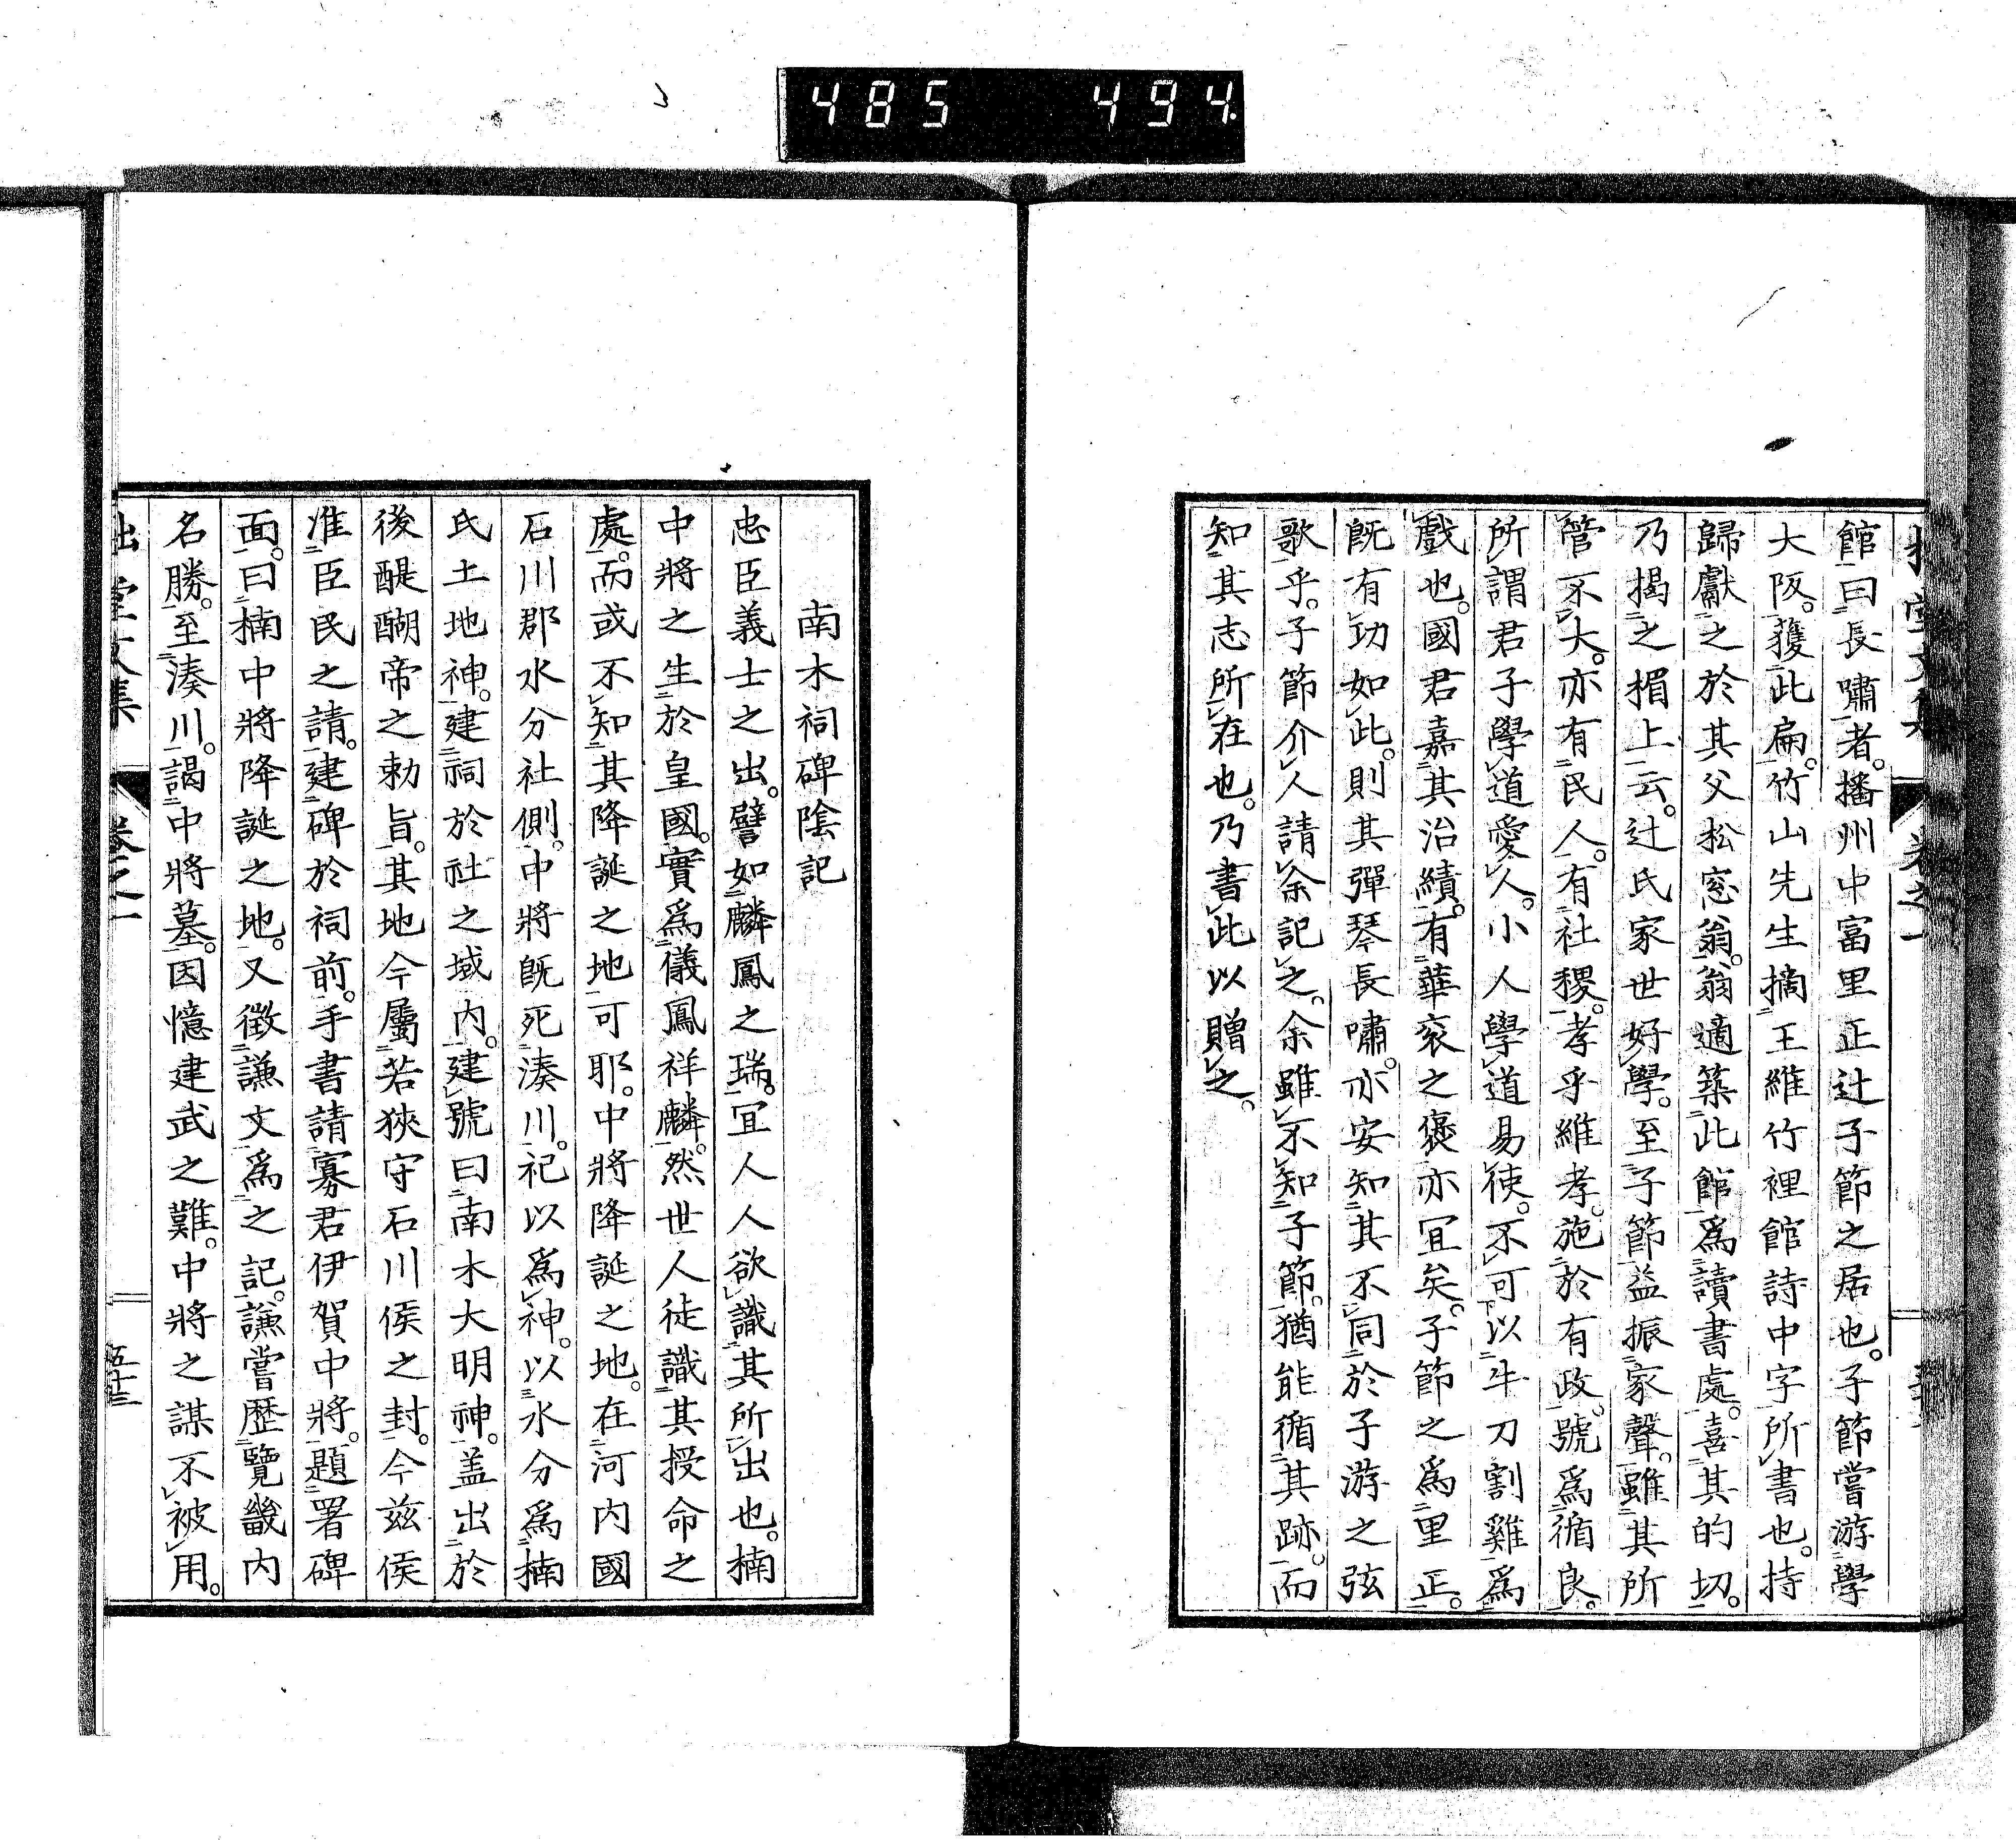 485 494.
館曰長嘯者。播州中富里正辻子節之居也。子節嘗游學
大阪。獲此扁。竹山先生摘王維竹裡館詩中字所書也。持
歸獻之於其父松窓翁。翁適築此館爲讀書處。喜其的切。
乃揭之楣上云。辻氏家世好學。至子節益振家聲。雖其所
管不大。亦有民人。有社稷。孝乎維孝。施於有政。號爲循良。
所謂君子學道愛人。小人學道易使。不可以牛刀割雞爲
戲也。國君嘉其治績。有華衮之褒。亦宜矣。子節之爲里正。
既有功如此。則其彈琴長嘯。亦安知其不同於子游之弦
歌乎。子節介人請余記之。余雖不知子節。猶能循其跡。而
知其志所在也。乃書此以贈之。
南木祠碑陰記
忠臣義士之出。譬如麟鳳之瑞。宜人人欲識其所出也。楠
中將之生於皇國。實爲儀鳳祥麟。然世人徒識其授命之
處。而或不知其降誕之地可耶。中將降誕之地。在河内國
石川郡水分社側。中將既死湊川。祀以爲神。以水分爲楠
氏土地神。建祠於社之域内。建號曰南木大明神。盖出於
後醍醐帝之勅旨。其地今屬若狹守石川侯之封。今兹侯
准臣民之請。建碑於祠前。手書請寡君伊賀中將。題署碑
面。曰楠中將降誕之地。又徵謙文爲之記。謙嘗歴覽畿内
名勝。至湊川。謁中將墓。因憶建武之難。中將之謀不被用。
拙堂文集 卷之一 五十三